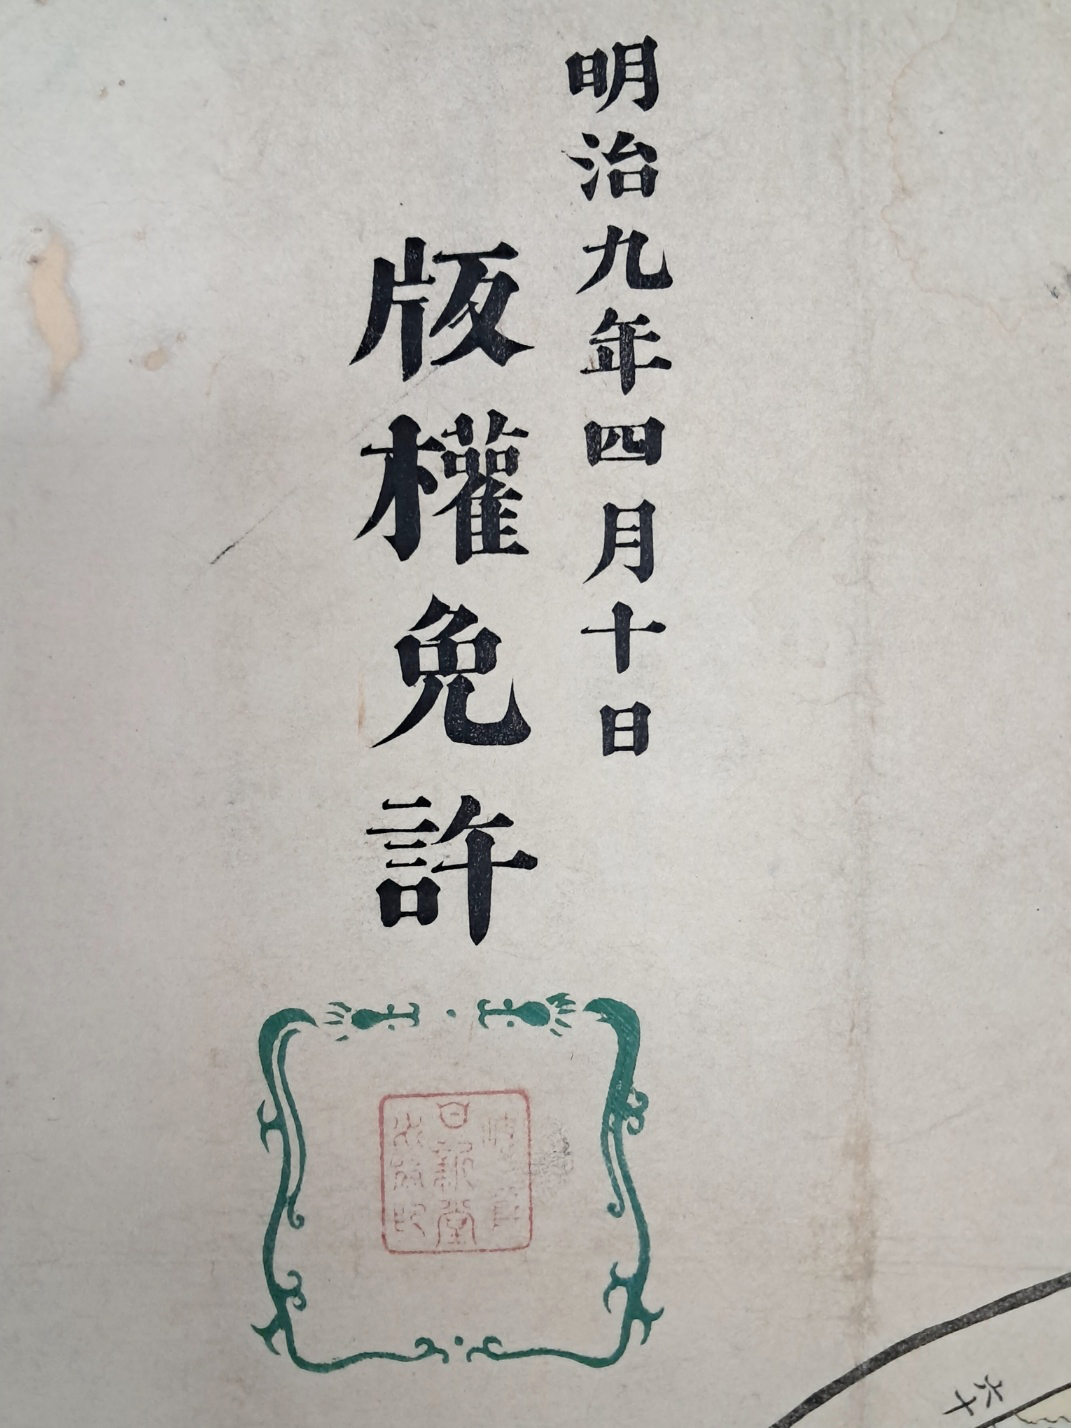 明治九年四月十日
版權免許
日新堂
六十